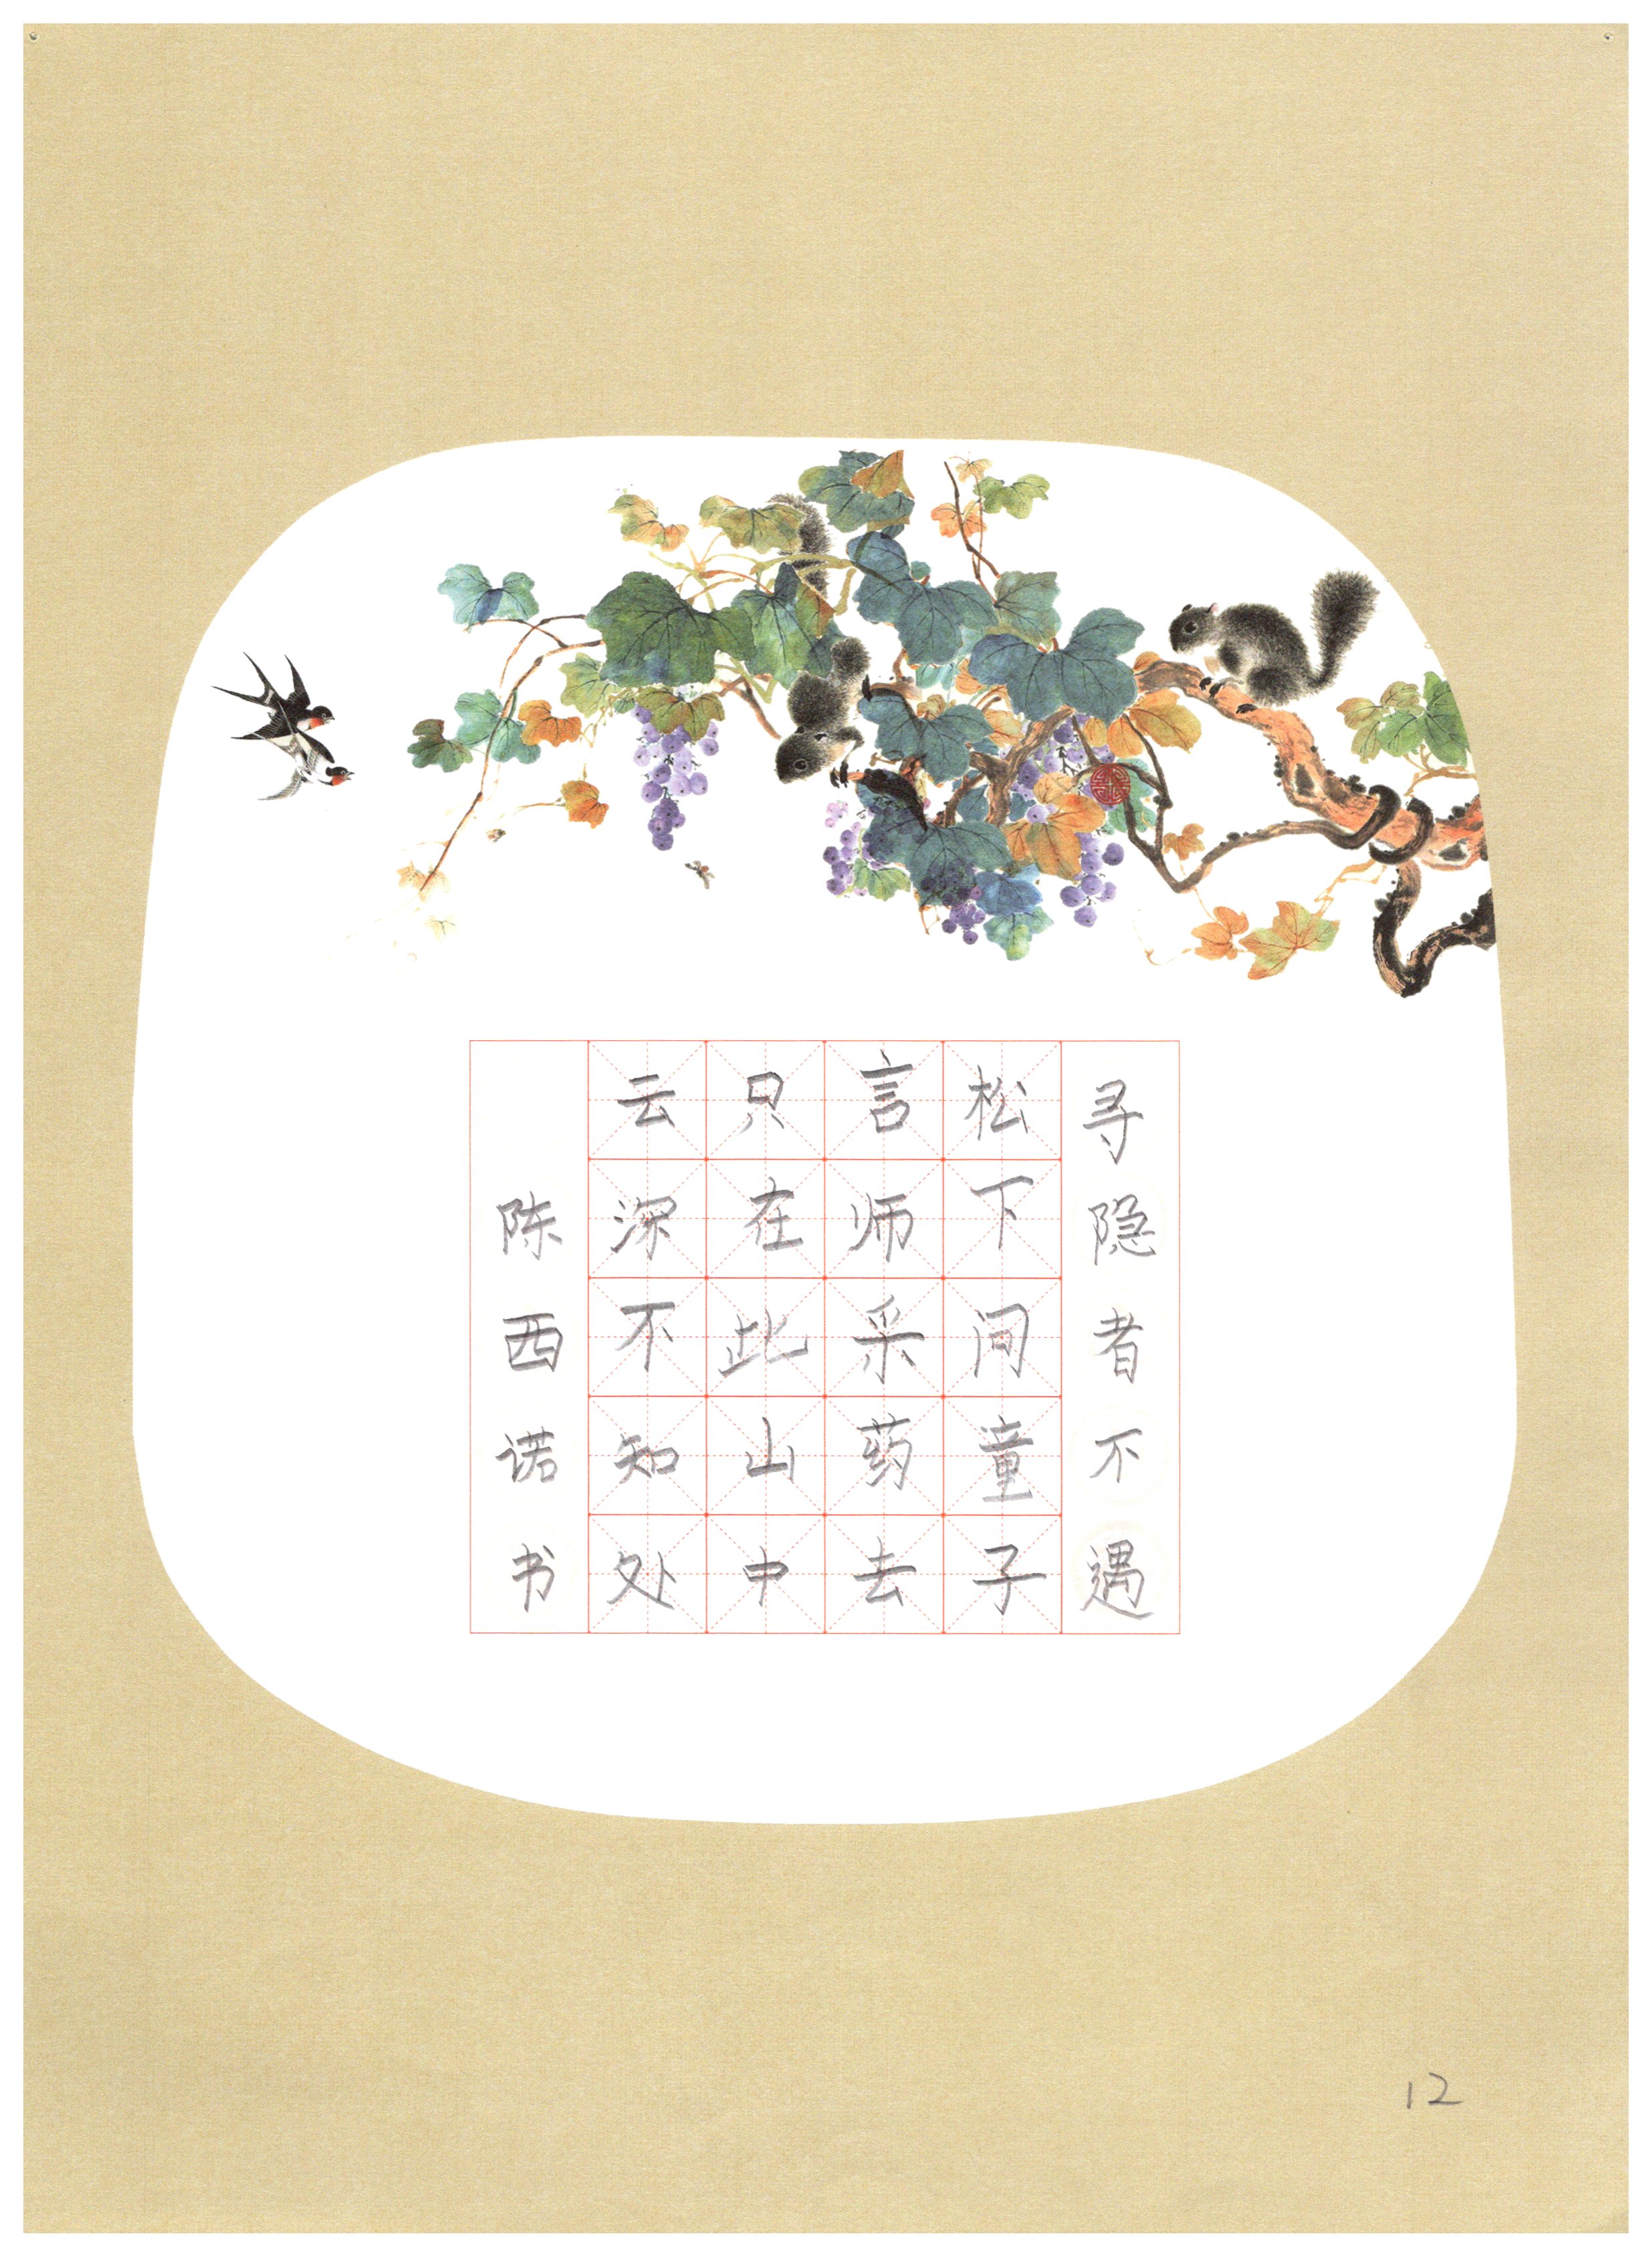 寻隐者不遇
松下问童子
言师采药去
只在此山中
云深不知处
陈西诺书
12